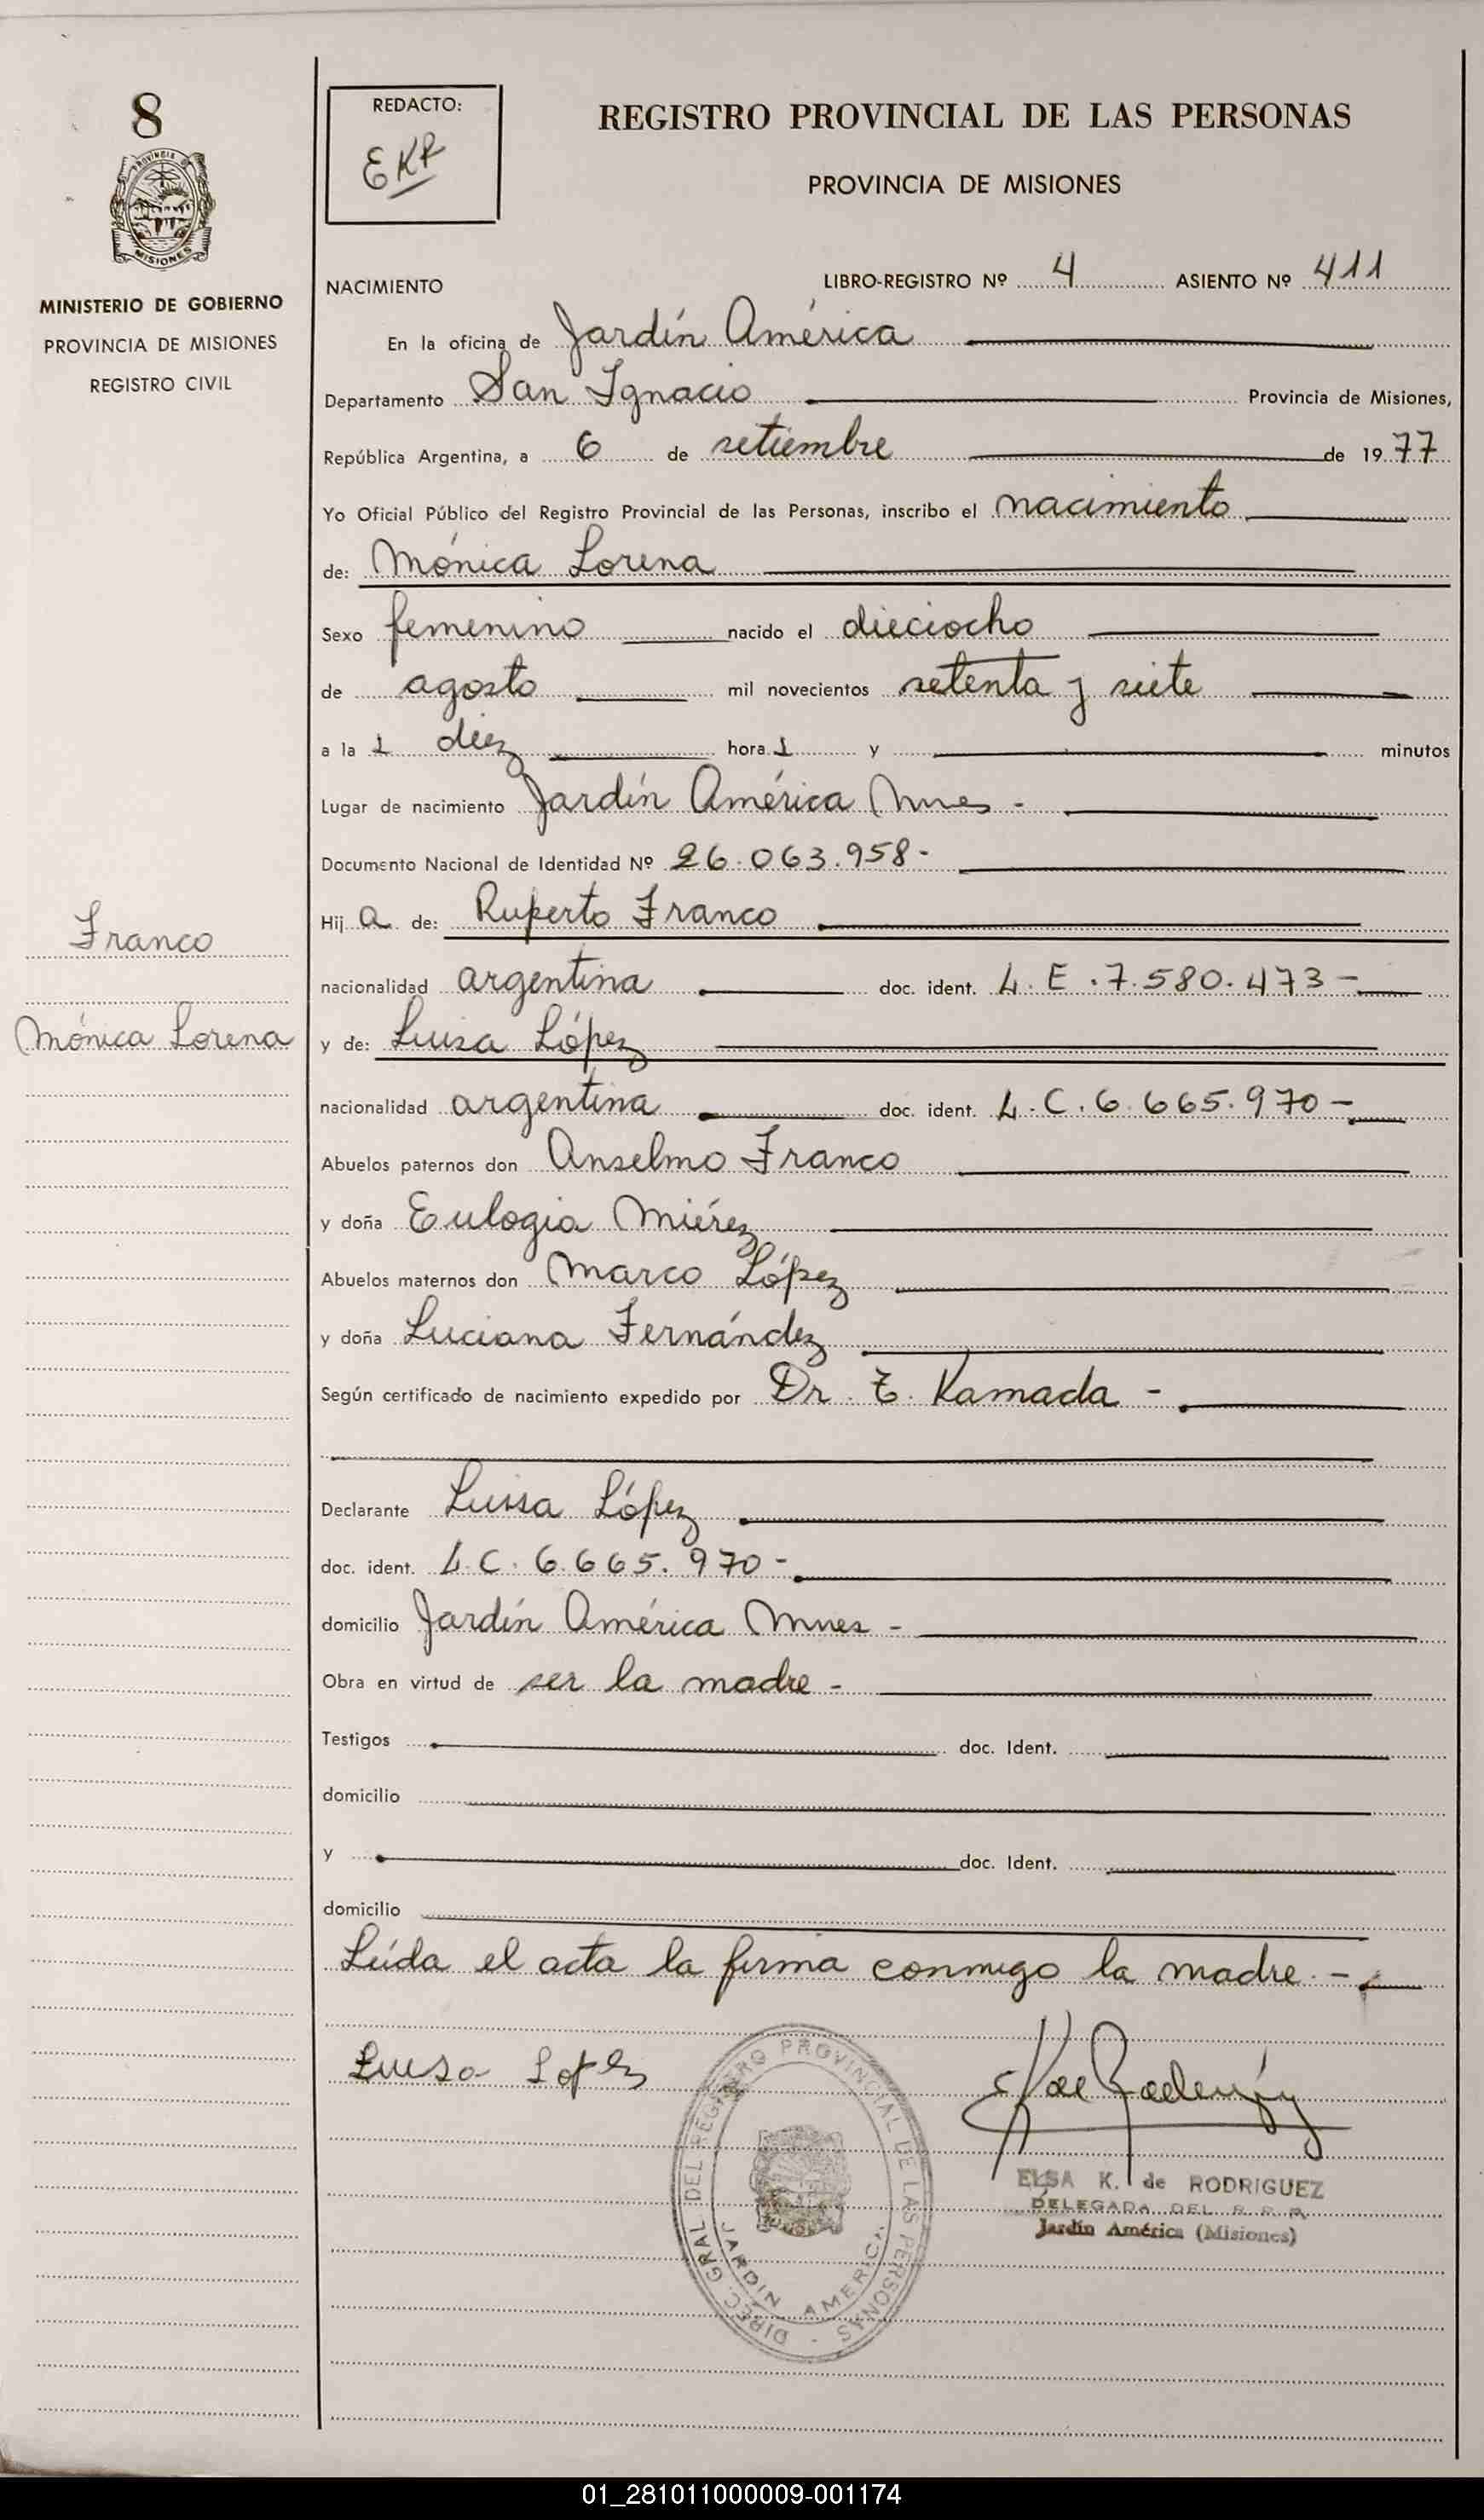 8
PROVINCIA DE
MISIONES
MINISTERIO DE GOBIERNO
PROVINCIA DE MISIONES
REGISTRO CIVIL
Franco
Mónica Lorena
REDACTO:
EKR
REGISTRO PROVINCIAL DE LAS PERSONAS
PROVINCIA DE MISIONES
NACIMIENTO LIBRO-REGISTRO Nº 4 ASIENTO Nº 411
En la oficina de Jardín América
Departamento San Ignacio Provincia de Misiones,
República Argentina, a 6 de setiembre de 1977
Yo Oficial Público del Registro Provincial de las Personas, inscribo el nacimiento
de: Mónica Lorena
Sexo femenino nacido el dieciocho
de agosto mil novecientos setenta y siete
a la s diez hora s y minutos
Lugar de nacimiento Jardín América Mnes -
Documento Nacional de Identidad Nº 26.063.958-
Hij a de: Ruperto Franco
nacionalidad argentina doc. ident. L.E.7.580.473-
y de: Luisa López
nacionalidad argentina doc. ident. L.C.6.665.970-
Abuelos paternos don Anselmo Franco
y doña Eulogia Miérez
Abuelos maternos don Marco López
y doña Luciana Fernández
Según certificado de nacimiento expedido por Dr. Z. Kamada -
Declarante Luisa López
doc. ident. L.C.6.665.970-
domicilio Jardín América Mnes -
Obra en virtud de ser la madre -
Testigos doc. Ident.
domicilio
y doc. Ident.
domicilio
Leída el acta la firma conmigo la madre.-
Luisa Lopez
DIREC. GRAL DEL REGISTRO PROVINCIAL DE LAS PERSONAS -
JARDIN AMERICA
ELSA K. de RODRIGUEZ
DELEGADA DEL R. P. P.
Jardín América (Misiones)
01_281011000009-001174